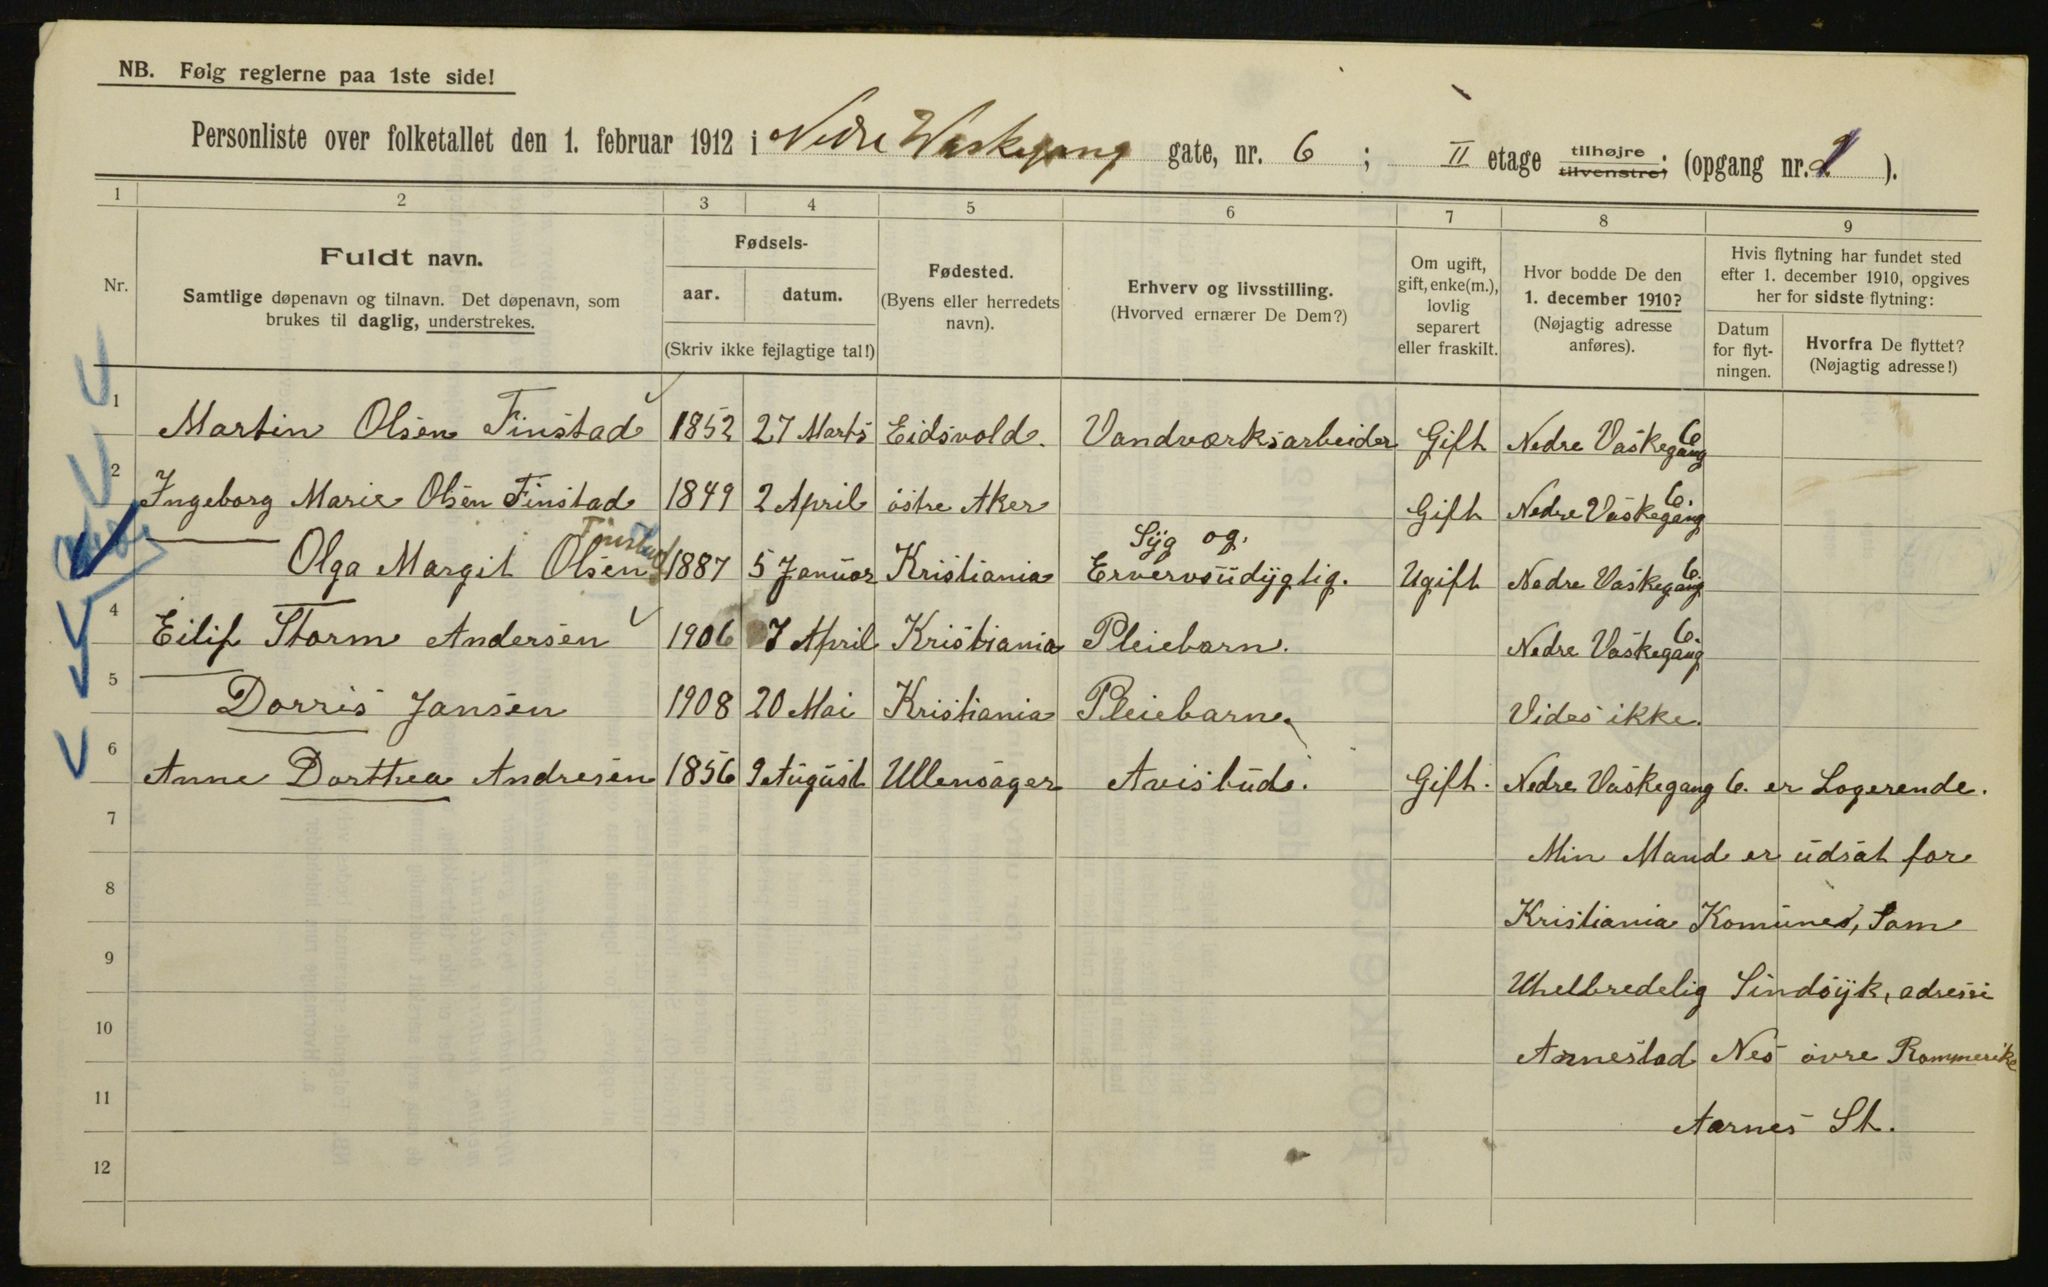 NB. Følg reglerne paa 1ste side!
Personliste over folketallet den 1. februar 1912 i Nedre Waskegang gate, nr. 6 ; II etage tilhøjre tilvenstre; (opgang nr. ).
1 2 3 4 5 6 7 8 9
Nr.
Fuldt navn.
Samtlige døpenavn og tilnavn. Det døpenavn, som
brukes til daglig, understrekes.
Fødsels-
aar. datum.
(Skriv ikke fejlagtige tal!)
Fødested.
(Byens eller herredets
navn).
Erhverv og livsstilling.
(Hvorved ernærer De Dem?)
Om ugift,
gift, enke(m.),
lovlig
separert
eller fraskilt.
Hvor bodde De den
1. december 1910?
(Nøjagtig adresse
anføres).
Hvis flytning har fundet sted
efter 1. december 1910, opgives
her for sidste flytning:
Datum
for flyt-
ningen.
Hvorfra De flyttet?
(Nøjagtig adresse!)
1 Martin Olsen Finstad 1852 27 Marts Eidsvold. Vandværksarbeider Gift Nedre Vaskegang 6
2 Ingeborg Marie Olsen Finstad 1849 2 April östre Aker Gift Nedre Vaskegang 6.
Olga Margit Olsen Finstad 1887 5 Januar Kristiania Syg og. Ervervsudygtig. Ugift Nedre Vaskegang 6.
4 Eilif Storm Andersen 1906 7 April Kristiania Pleiebarn. Nedre Vaskegang 6.
5 Dorris Jansen 1908 20 Mai Kristiania Pleiebarn. Vides ikke.
6 Anne Dorthea Andresen 1856 9 August Ullensager Avisbud. Gift. Nedre Vaskegang 6. er Logerende.
7 Min Mand er udsat for
8 Kristiania Komunes, Som
9 Uhelbredelig Sindsyk, adresse
10 Arnestad Nes övre Rommerike
11 Aarnes St.
12